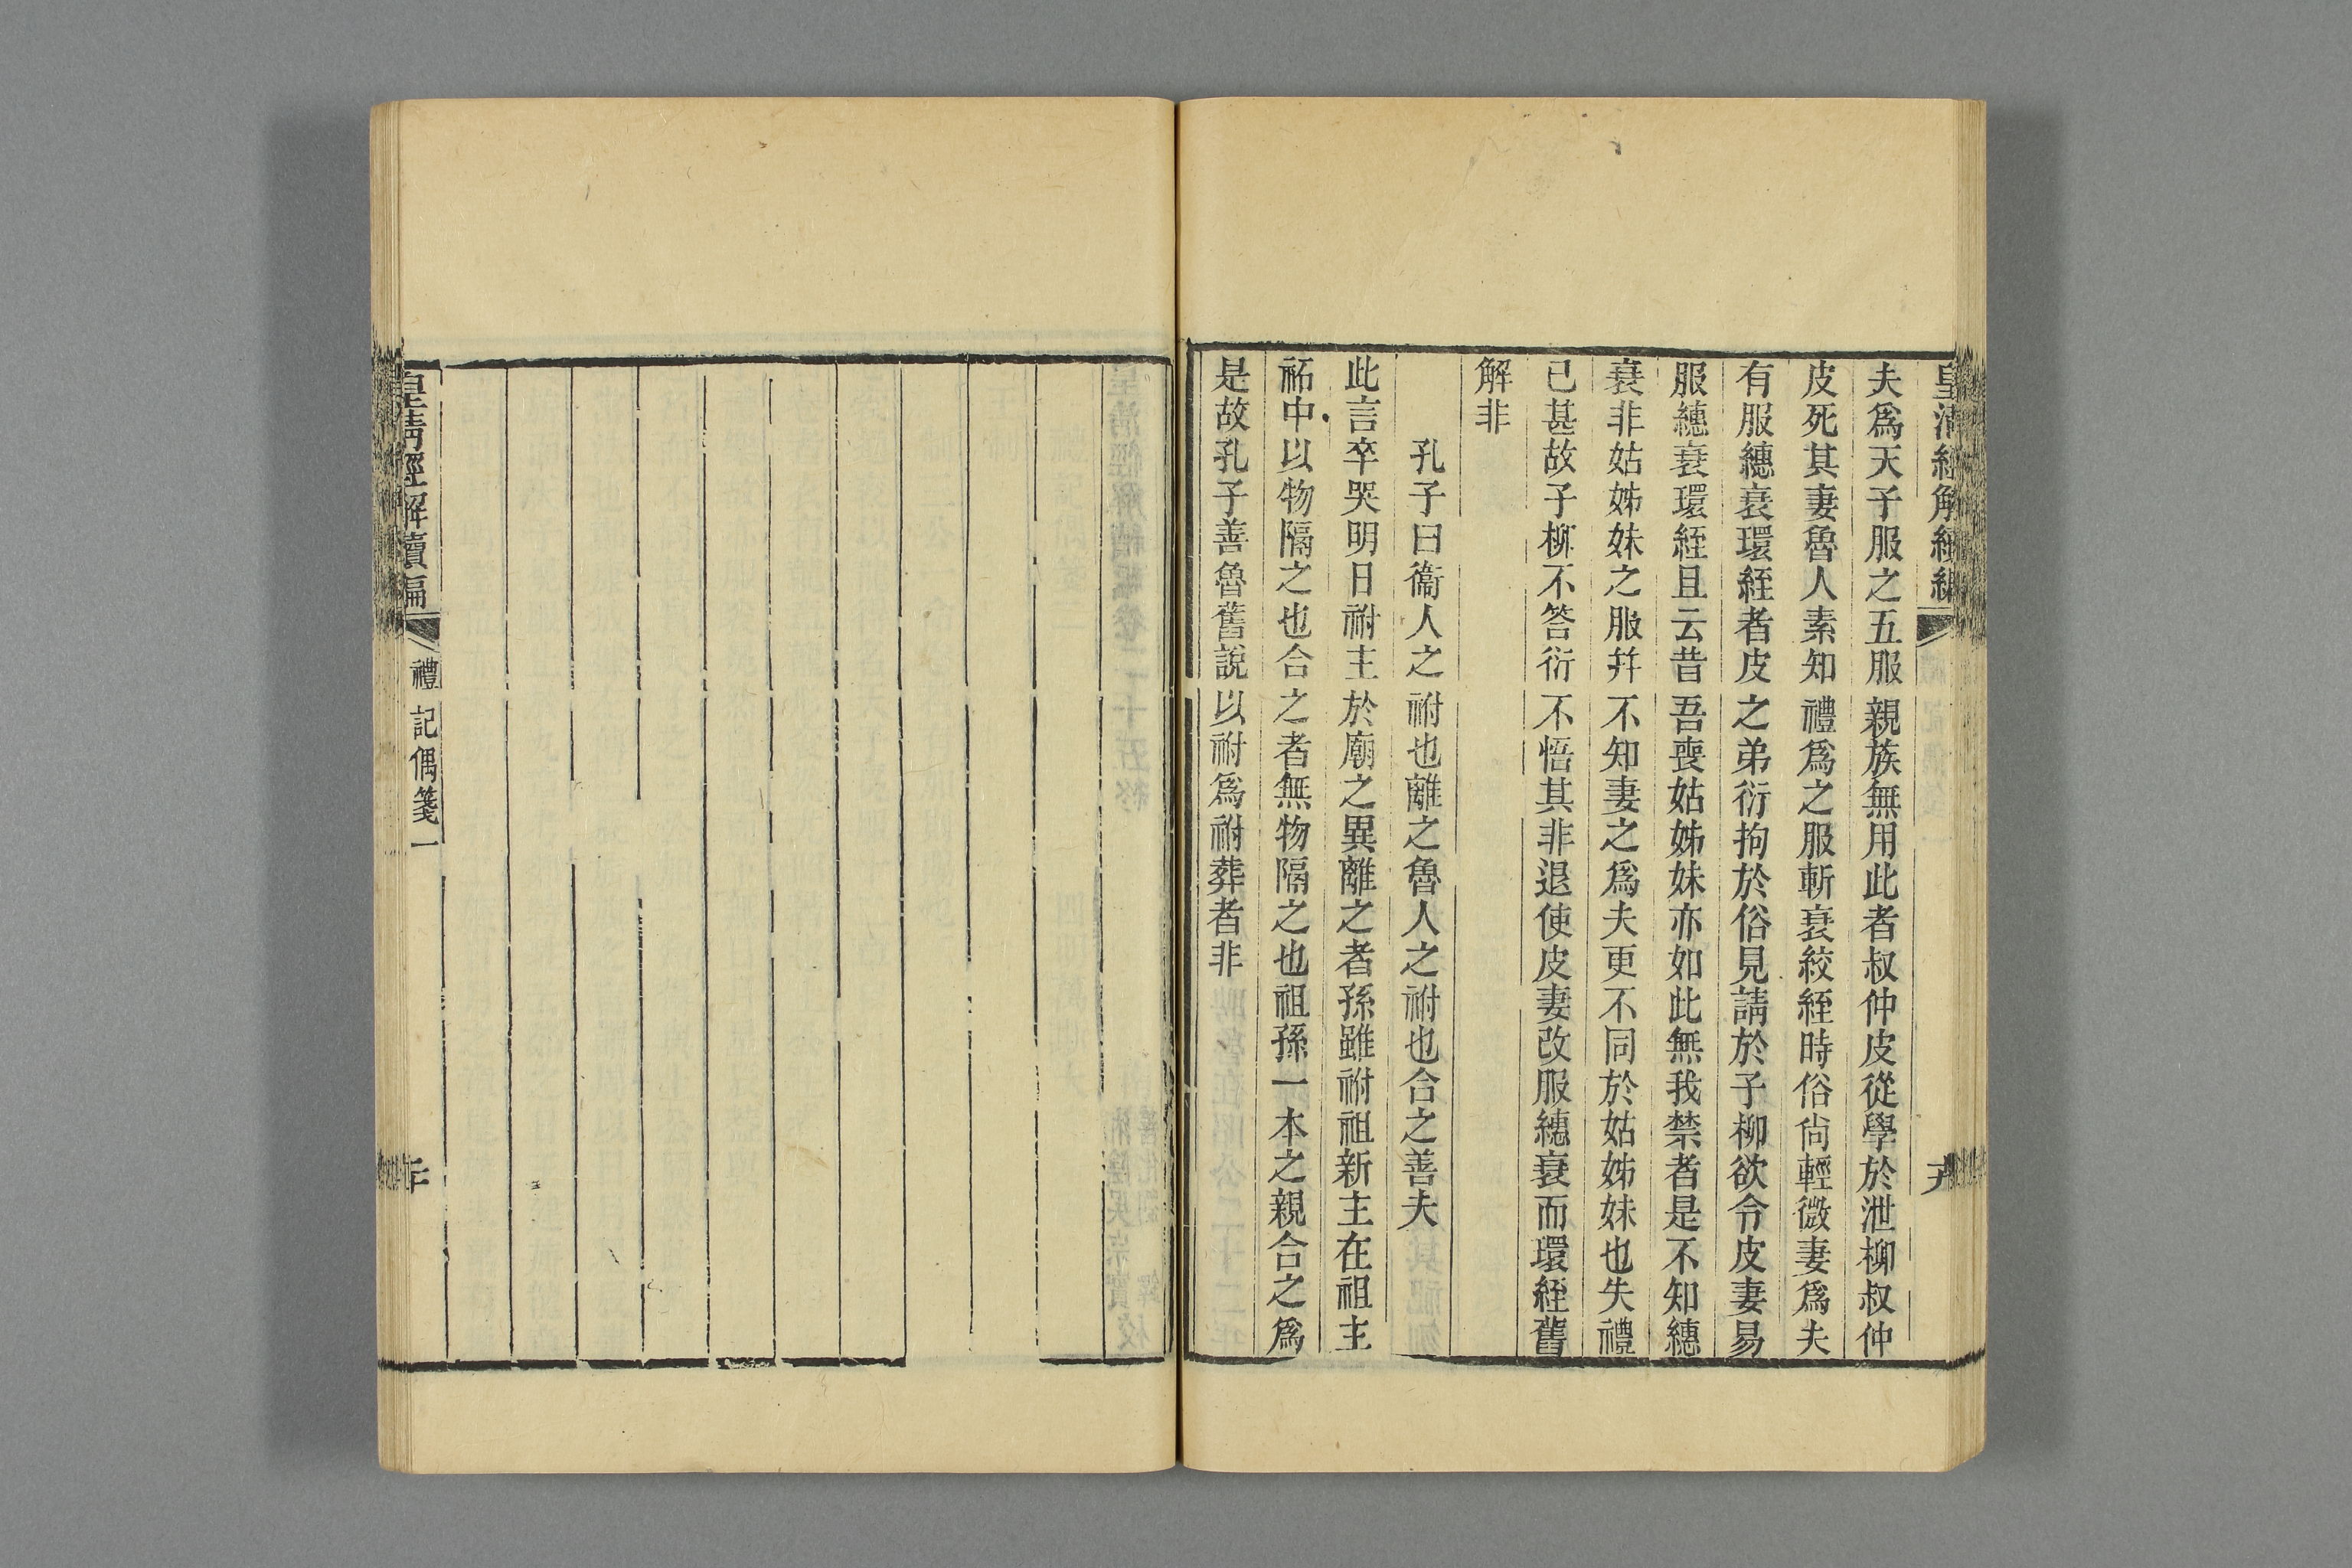 夫爲天子服之五服親族無用此者叔仲皮從學於泄柳叔仲
皮死其妻魯人素知禮爲之服斬衰絞絰時俗尙輕微妻爲夫
有服繐衰環絰者皮之弟衍拘於俗見請於子柳欲令皮妻易
服繐衰環絰且云昔吾喪姑姊妹亦如此無我禁者是不知繐
衰非姑姊妹之服幷不知妻之爲夫更不同於姑姊妹也失禮
已甚故子柳不答衍不悟其非退使皮妻改服繐衰而環絰舊
解非
孔子曰衞人之祔也離之魯人之祔也合之善夫
此言卒哭明日祔主於廟之異離之者孫雖祔祖新主在祖主
祏中以物隔之也合之者無物隔之也祖孫一本之親合之爲
是故孔子善魯舊說以祔爲祔葬者非
皇清經解續編
禮記偶箋一